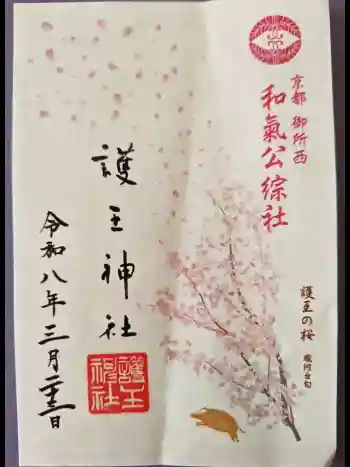 京都 御所西
和氣公綜社
護王の桜
護王神社
護王神社
令和八年三月二十三日